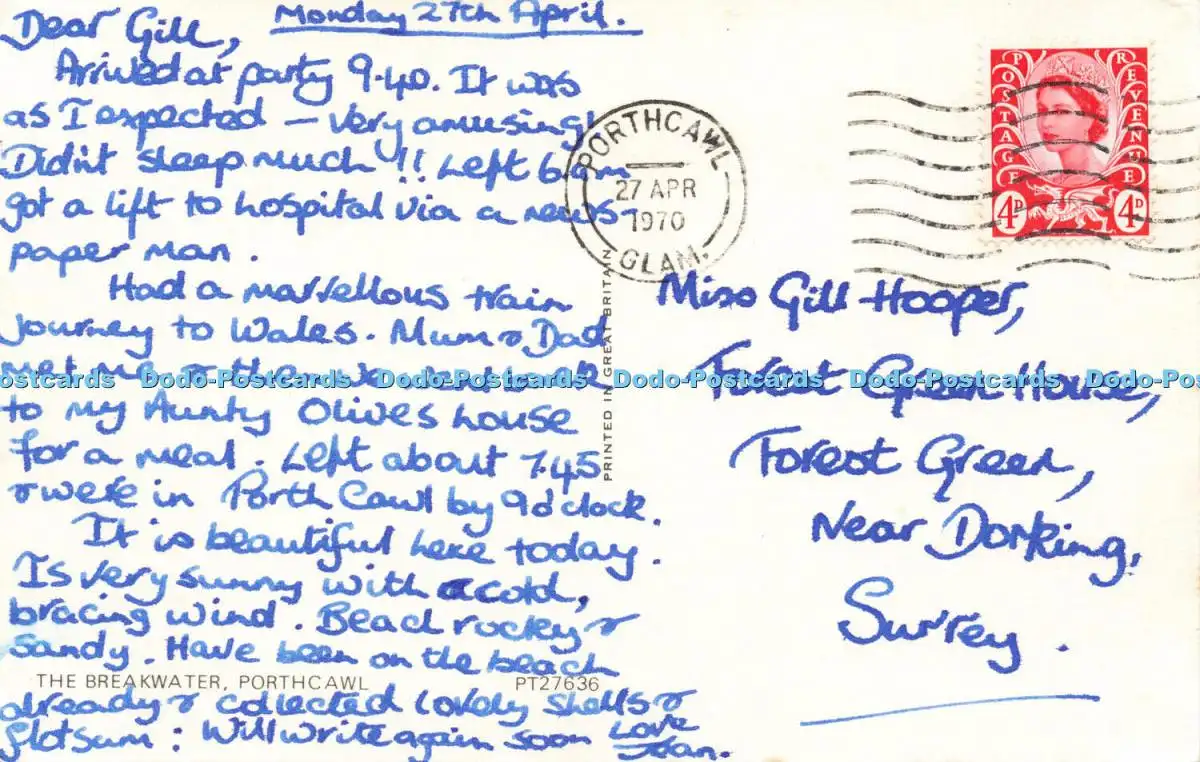 Monday 27th April.
Dear Gill,
Arrived at party 9.40. It was
as I expected – very amusing!
Didn't sleep much!! Left 6am
got a lift to hospital via a news-
paper man.
Had a marvellous train
journey to Wales. Mum & Dad
met me
to my Aunty Olives house
for a meal. Left about 7.45
& were in Porth Cawl by 9 o'clock.
It is beautiful here today.
Is very sunny with a cold,
bracing wind. Beach rocky &
Sandy. Have been on the beach
already & collected lovely shells &
flotsum: Will write again soon
Love
Jean.
THE BREAKWATER, PORTHCAWL
PT27636
PRINTED IN GREAT BRITAIN
PORTHCAWL
27 APR
1970
GLAM.
POSTAGE REVENUE
4D 4D
Miss Gill Hooper,
Forest Green House,
Forest Green,
Near Dorking,
Surrey.
ostcards Dodo-Postcards Dodo-Postcards Dodo-Postcards Dodo-Postcards Dodo-Pos